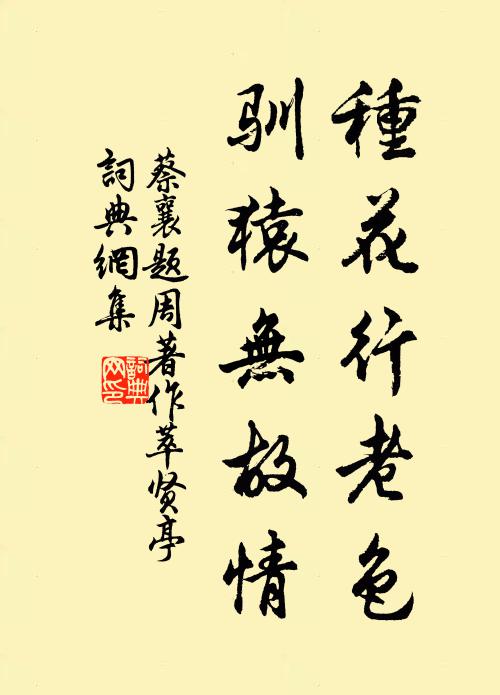 種花行老色
馴猿無故情
蔡襄题周著作萃贤亭
詞典網集
詞典网印